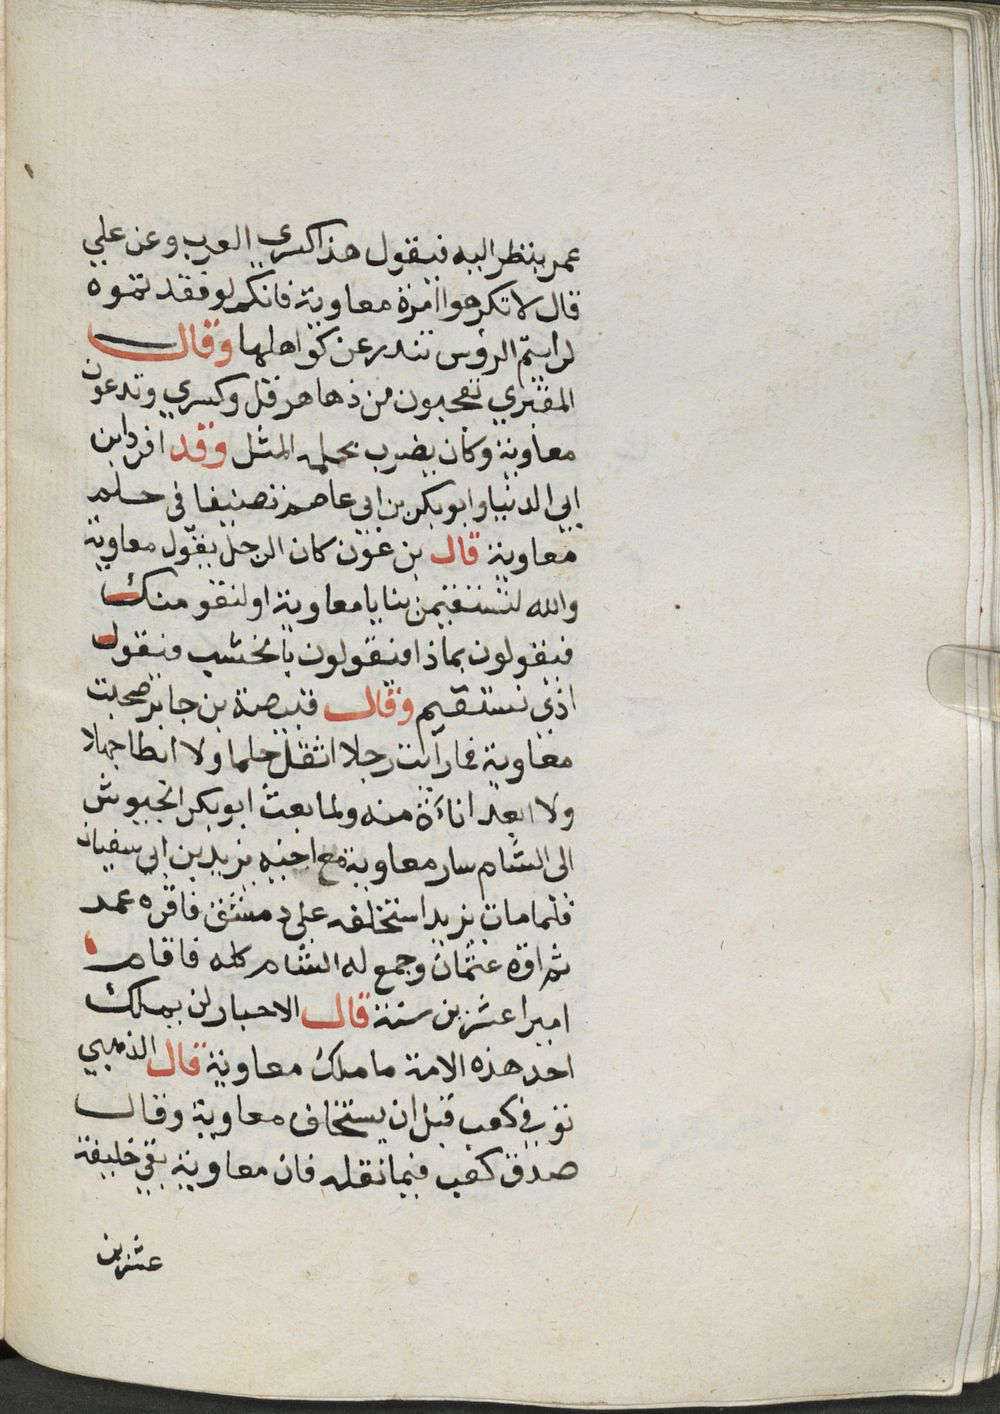 عمر ينظر اليه فيقول هذا كسري العرب وعن علي
قال لا تكرهوا امرة معاوية فانكم لو فقدتموه
لرايتم الروس تندر عن كواهلها وقال
المقبري تعجبون من دهاهرقل وكسري وتدعون
معاوية وكان يضرب بحلمه المثل وقد افرد ابن
ابي الدنيا وابو بكر بن ابي عاصم تصنيفا في حلم
معاوية قال بن عون كان الرجل يقول معاوية
والله لتستقيمن بنا يا معاوية او لنقومنك
فيقولون بماذا فيقولون بالخشب فيقول
اذي نستقيم وقال قبيصة بن جابر صحبت
معاوية فما رايت رجلا اثقل حلما ولا ابطا جهلا
ولا ابعد اناءة منه ولما بعث ابو بكر الجيوش
الي الشام سار معاوية مع اخيه يزيد بن ابي سفيان
فلما مات يزيد استخلفه علي دمشق فاقره عمر
ثم اقره عثمان وجمع له الشام كله فاقام
اميرا عشرين سنة قال الاحبار لن يملك
احد هذه الامة ما ملك معاوية قال الذهبي
توفي كعب قبل ان يستخلف معاوية وقال
صدق كعب فيما نقله فان معاوية بقي خليفة
عشرين